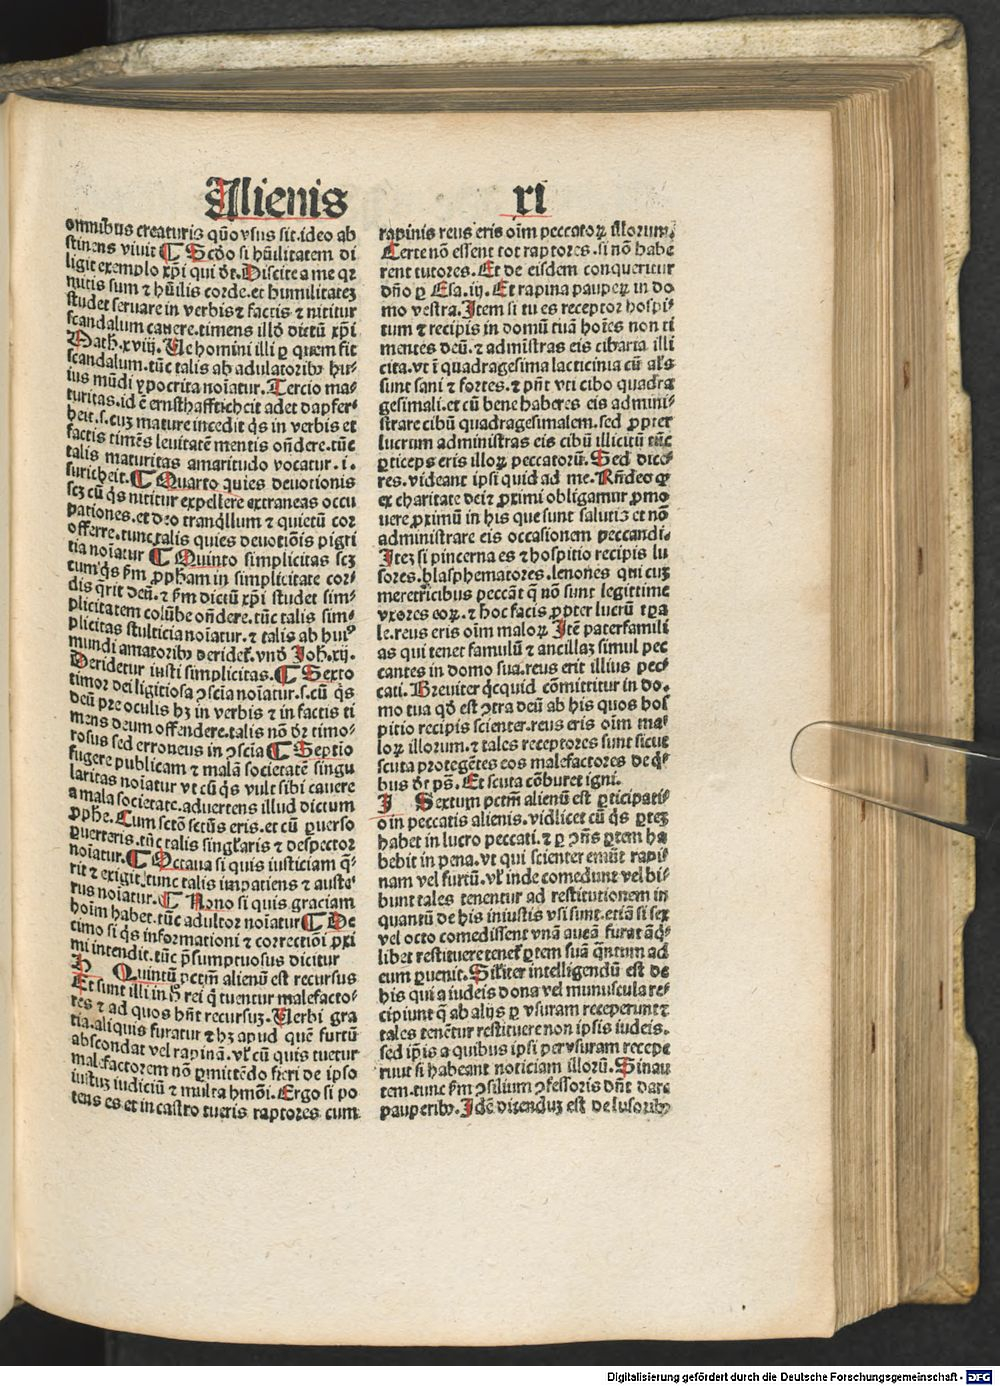 Alienis
xi
omnibus creaturis quo vsus sit.ideo ab
stinens viuit ¶ Scd̄o si hūilitatem di
ligit exemplo xp̄i qui dt̄.Discite a me qꝛ
mitis sum ⁊ hūilis corde.et humilitateꝫ
studet seruare in verbis ⁊ factis ⁊ nititur
scandalum cauere.timens illd̄ dictū xp̄i
Math.xviij.Ue homini illi ꝑ quem fit
scandalum.tūc talis ab adulatoribꝰ hu⸗
ius mūdi ypocrita noīatur.Tercio ma⸗
turitas.id ē ernsthaffticheit adet dapfer⸗
heit.s.cuꝫ mature incedit q̄s in verbis et
factis timēs leuitatē mentis on̄dere.tūc
talis maturitas amaritudo vocatur.i.
suricheit.¶ Quarto quies deuotionis
scꝫ cū q̄s nititur expellere extraneas occu
pationes.et deo tranq̇llum ⁊ quietū cor
offerre.tunc talis quies deuotiōis pigri
tia noīatur ¶ Quinto simplicitas scꝫ
cum q̄s ẜm ꝓph̄am in simplicitate cor⸗
dis q̄rit deū.⁊ ẜm dictū xp̄i studet sim⸗
plicitatem colūbe on̄dere.tūc talis sim⸗
plicitas stulticia noīatur.⁊ talis ab huiꝰ
mundi amatoribꝰ deridet̄.vnd̄ Joh.xij.
Deridetur iusti simplicitas.¶ Sexto
timor dei ligitiosa ꝯscia noīatur.s.cū q̄s
deū pre oculis hꝫ in verbis ⁊ in factis ti
mens deum offendere.talis nō dr̄ timo⸗
rosus sed erroneus in ꝯscia ¶ Septio
fugere publicam ⁊ malā societatē singu
laritas noīatur vt cū q̄s vult sibi cauere
a mala societate.aduertens illud dictum
ꝓphe.Cum sctō sctūs eris.et cū ꝑuerso
ꝑuerteris.tūc talis singl̄aris ⁊ despector
noīatur.¶ Octaua si quis iusticiam q̄⸗
rit ⁊ exigit.tunc talis impatiens ⁊ auste⸗
rus noīatur.¶ Nono si quis graciam
hoīm habet.tūc adultor noīatur ¶ De
cimo si q̄s informationi ⁊ correctiōi ꝓxi
mi intendit.tūc p̄sumptuosus dicitur
H Quintū pctm̄ alienū est recursus
Et sunt illi in h̄ rei q̄ tuentur malefacto⸗
res ⁊ ad quos hn̄t recursuꝫ.Uerbi gra
tia.aliquis furatur ⁊ hꝫ apud quē furtū
abscondat vel rapinā.vl̄ cū quis tuetur
malefactorem nō ꝑmittēdo fieri de ipso
iustuꝫ iudiciū ⁊ multa hmōi.Ergo si po
tens es et in castro tueris raptores cum
rapinis reus eris oīm peccatoꝝ illorum.
Certe nō essent tot raptores.si nō habe
rent tutores.Et de eisdem conqueritur
dn̄o ꝑ Esa.iij.Et rapina pauperꝝ in do
mo vestra.Item si tu es receptor hospi⸗
tum ⁊ recipis in domū tuā hoīes non ti
mentes deū.⁊ admīstras eis cibaria illi
cita.vt ī quadragesima lacticinia cū als̄
sunt sani ⁊ fortes.⁊ pn̄t vti cibo quadra
gesimali.et cū bene haberes eis admini⸗
strare cibū quadragesimalem.sed ꝓpter
lucrum administras eis cibū illicitū tūc
ꝑticeps eris illoꝝ peccatorū.Sed dice⸗
res.videant ipsi quid ad me.Rn̄deo qꝫ
ex charitate dei⁊ ꝓximi obligamur ꝓmo
uere ꝓximū in his que sunt salutis et nō
administrare eis occasionem peccandi.
Iteꝫ si pincerna es ⁊ hospitio recipis lu
sores.blasphematores.lenones qui cuꝫ
meretricibus peccāt q̄ nō sunt legittime
vxores eoꝝ.⁊ hoc facis ꝓpter lucrū tꝑa
le.reus eris oīm maloꝝ Itē paterfamili
as qui tenet famulū ⁊ ancillaꝫ simul pec
cantes in domo sua.reus erit illius pec⸗
cati.Breuiter q̇cquid cōmittitur in do⸗
mo tua qd̄ est ꝯtra deū ab his quos hos
pitio recipis scienter.reus eris oīm ma⸗
loꝝ illorum.⁊ tales receptores sunt sicut
scuta protegētes eos malefactores de q̄⸗
bus dt̄ ps̄.Et scuta cōburet igni.
J Sextum pctm̄ alienū est ꝑticipati⸗
o in peccatis alienis.vidlicet cū q̄s ꝑteꝫ
habet in lucro peccati.⁊ ꝑ ꝯn̄s ꝑtem ha
bebit in pena.vt qui scienter emūt rapi⸗
nam vel furtū.vl̄ inde comedunt vel bi⸗
bunt tales tenentur ad restitutionem in
quantū de his iniustis vsi sunt.etiā si sex
vel octo comedissent vnā aucā furatā q̄⸗
libet restituere tenet̄ ꝑtem suā q̄ntum ad
eum ꝑuenit.Silīter intelligendū est de
his qui a iudeis dona vel munuscula re⸗
cipiunt q̄ ab alijs ꝑ vsuram receperunt ⁊
tales tenētur restituere non ipsis iudeis.
sed ip̄is a quibus ipsi per vsuram recepe
runt si habeant noticiam illorū.Sinau
tem.tunc ẜm ꝯsilium ꝯfessoris dn̄t dare
pauperibꝰ.Idē dicenduꝫ est de lusoribꝰ
Digitalisierung gefördert durch die Deutsche Forschungsgemeinschaft - DFG